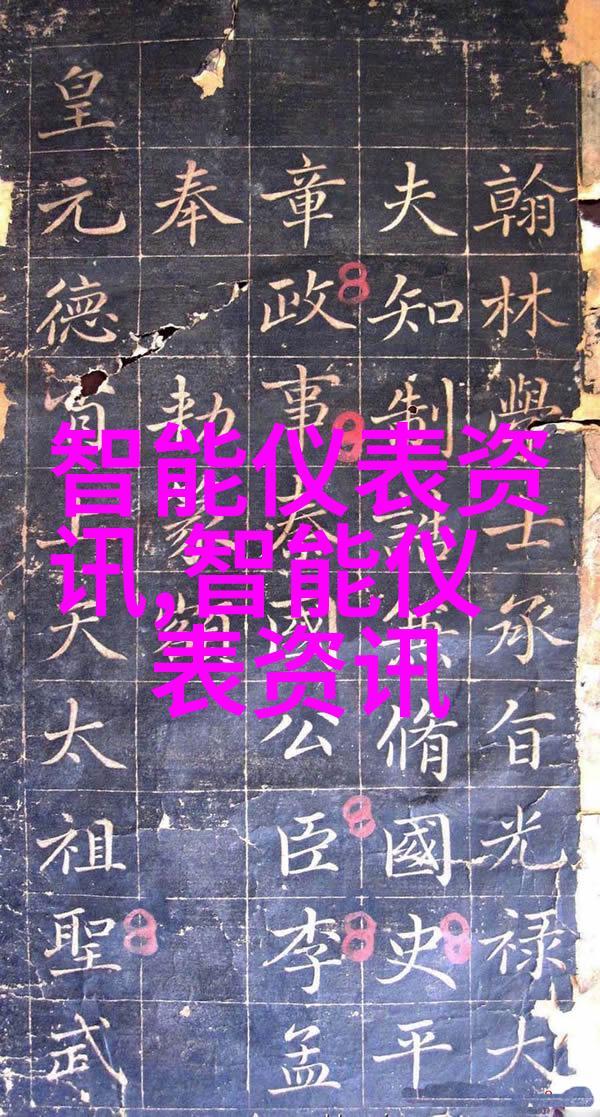 智能仪表资
讯,智能仪
表资讯
翰林學士承旨光禄大
夫知制誥兼脩國史平
章政事秦國公臣李孟
奉
勅篆額
皇
元德上天太祖聖武